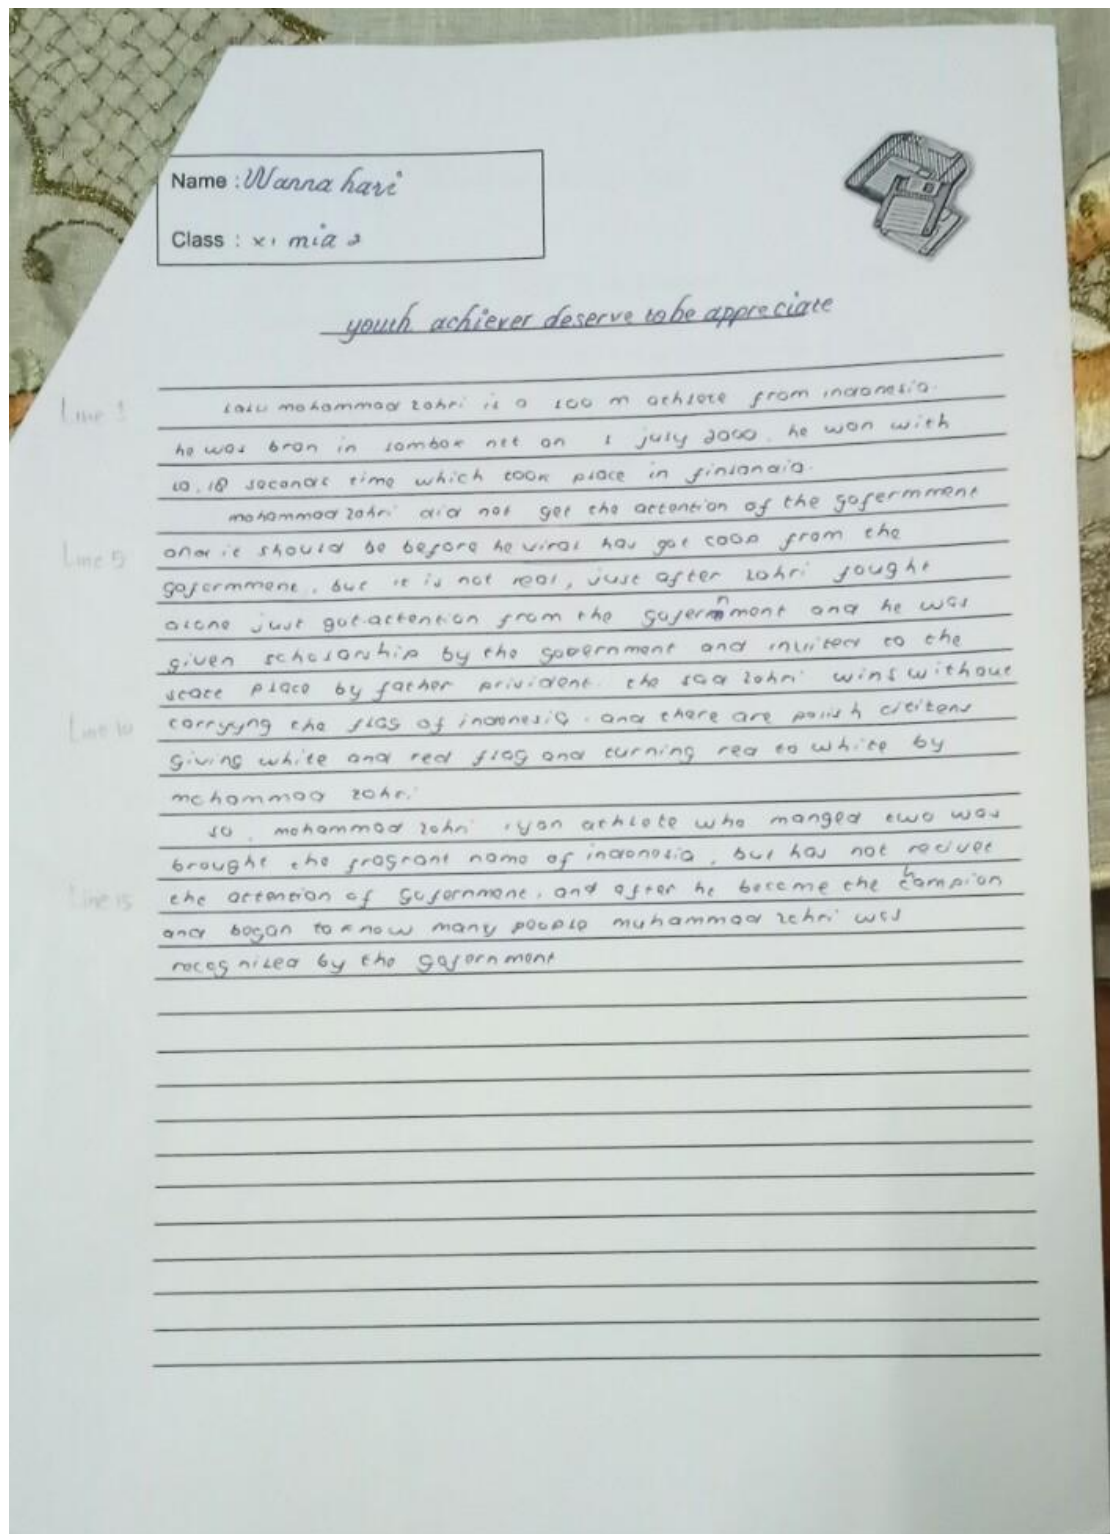 Name : Wanna hari
Class : XI mia 2
youth achiever deserve to be appreciate
Line 1
lalu mohammad zohri is a 100 m achlete from indonesia.
he was bron in lombok ntt on 1 july 2000. he won with
10.18 seconds time which took place in finlandia.
mohammad zohri did not get the attention of the gofermment
Line 5
and it should be before he viral has got from the
gofermment. but it is not real, just after zohri fought
alone just got attention from the gofernment and he was
given scholarship by the government and invited to the
state place by father prisident. the sad zohri wins without
Line 10
carryyng the flag of indonesia. and there are polish cititens
giving white and red flag and turning red to white by
mohammad zohri
so, mohammad zohri athlete who manged two was
brought the fragrant name of indonesia, but has not recivet
Line 15
the attention of gofernment. and after he become the champion
and began to know many people muhammad zohri was
recognized by the gofernment